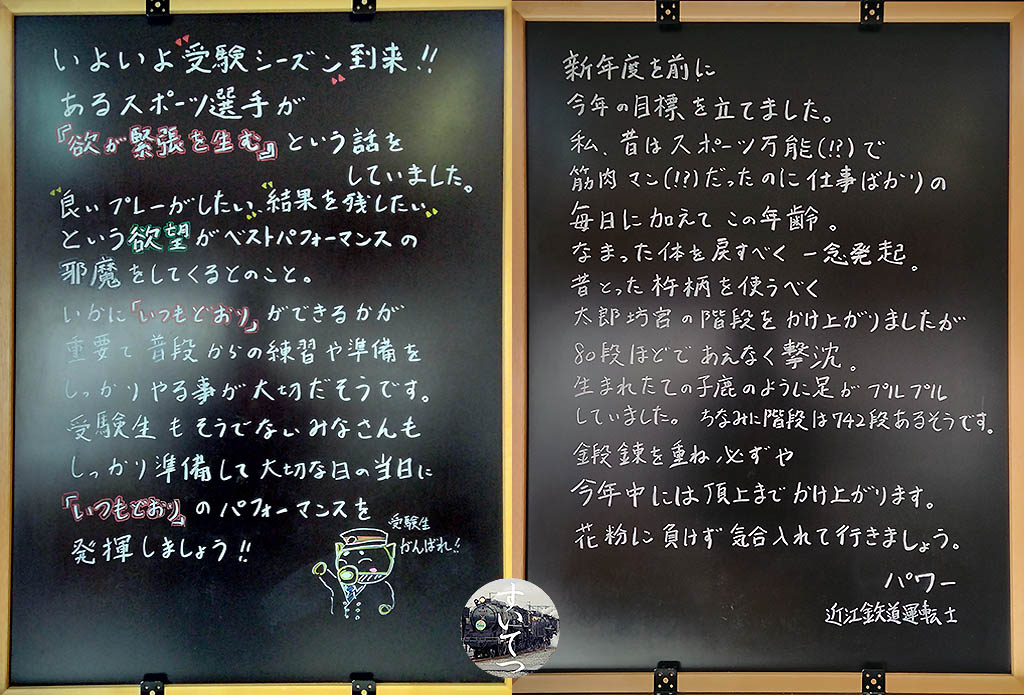 いよいよ受験シーズン到来!!
あるスポーツ選手が
『欲が緊張を生む』という話を
していました。
"良いプレーがしたい"、"結果を残したい"
という欲望がベストパフォーマンスの
邪魔をしてくるとのこと。
いかに「いつもどおり」ができるかが
重要で普段からの練習や準備を
しっかりやる事が大切だそうです。
受験生もそうでないみなさんも
しっかり準備して大切な日の当日に
「いつもどおり」のパフォーマンスを
発揮しましょう!!
受験生
がんばれ!!
新年度を前に
今年の目標を立てました。
私、昔はスポーツ万能(!?)で
筋肉マン(!?)だったのに仕事ばかりの
毎日に加えてこの年齢。
なまった体を戻すべく一念発起。
昔とった杵柄を使うべく
太郎坊宮の階段をかけ上がりましたが
80段ほどであえなく撃沈。
生まれたての子鹿のように足がプルプル
していました。ちなみに階段は742段あるそうです。
鍛錬を重ね必ずや
今年中には頂上までかけ上がります。
花粉に負けず気合入れて行きましょう。
パワー
近江鉄道運転士
すいてつ